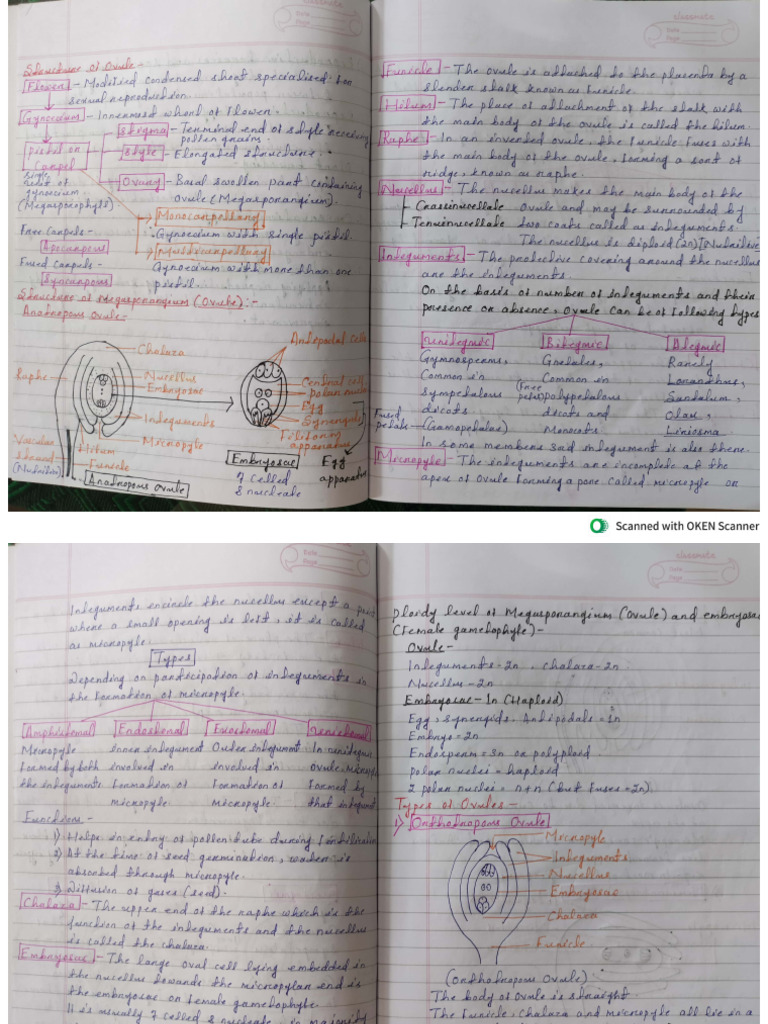 classmate
Date
Page
Structure of Ovule -
Flower - Modified condensed shoot specialised for
sexual reproduction.
Gynoecium - Innermost whorl of Flower.
Stigma - Terminal end of style receiving
pollen grains.
Pistil or
Carpel
Style - Elongated structure.
Ovary - Basal swollen part containing
ovule (Megasporangium).
unit of
gynoecium
(Megasporophyll)
Monocarpellary
Gynoecium with single pistil.
Multicarpellary
Gynoecium with more than one
pistil.
Free Carpels -
Apocarpous
Fused Carpels -
Syncarpous
Structure of Megasporangium (Ovule):-
Anatropous Ovule -
Chalaza
Raphe
Nucellus
Embryosac
Integuments
Micropyle
Vascular
strand
(Nutrition)
Hilum
Funicle
Anatropous Ovule
Antipodal cells
Central cell
polar nuclei
Egg
Synergids
Filiform
apparatus
Embryosac
7 celled
8 nucleate
Egg
apparatus
classmate
Date
Page
Funicle - The ovule is attached to the placenta by a
slender stalk known as funicle.
Hilum - The place of attachment of the stalk with
the main body of the ovule is called the hilum.
Raphe - In an inverted ovule, the funicle fuses with
the main body of the ovule, forming a sort of
ridge, known as raphe.
Nucellus - The nucellus makes the main body of the
Crassinucellate ovule and may be surrounded by
Tenuinucellate two coats called as integuments.
The nucellus is diploid (2n) [Nutritive
Integuments - The protective covering around the nucellus
are the integuments.
On the basis of number of integuments and their
presence or absence, ovule can be of following types
Unitegmic
Bitegmic
Ategmic
Gymnosperms,
Gnetales,
Rarely
Common in
Common in
Loranthus,
sympetalous
(Free
petal)
polypetalous
Santalum,
dicots
dicots and
Olax,
Fused
petals
(Gamopetalae)
Monocots
Liriosma.
In some members 3rd integument is also there.
Micropyle - The integuments are incomplete at the
apex of ovule forming a pore called micropyle or
Scanned with OKEN Scanner
Date
Page
Integuments encircle the nucellus except a part
where a small opening is left, it is called
as micropyle.
Types
Depending on participation of integuments in
the formation of micropyle.
Amphistomal
Endostomal
Exostomal
Unistomal
Micropyle
inner integument
Outer integument
In unitegmic
formed by both
involved in
involved in
ovule, micropyle
the integuments
formation of
formation of
formed by
micropyle.
micropyle.
that integument
Functions -
1) Helps in entry of pollen tube during fertilisation
2) At the time of seed germination, water is
absorbed through micropyle.
3) Diffusion of gases (seed).
Chalaza - The upper end of the raphe which is the
junction of the integuments and the nucellus
is called the chalaza.
Embryosac - The large oval cell lying embedded in
the nucellus towards the micropylar end is
the embryosac or female gametophyte.
It is usually 7 celled 8 nucleate, in majority
classmate
Date
Page
Ploidy level of Megasporangium (Ovule) and embryosac
(Female gametophyte) -
Ovule -
Integuments - 2n, Chalaza - 2n.
Nucellus - 2n
Embryosac - 1n (Haploid)
Egg, synergids, Antipodals = 1n
Embryo = 2n
Endosperm = 3n or polyploid
polar nuclei = haploid
2 polar nuclei = n+n (but fuses = 2n).
Types of Ovules -
1) Orthotropous Ovule
Micropyle
Integuments
Nucellus
Embryosac
Chalaza
Funicle
(Orthotropous Ovule)
The body of ovule is straight.
The Funicle, Chalaza and micropyle all lie in a